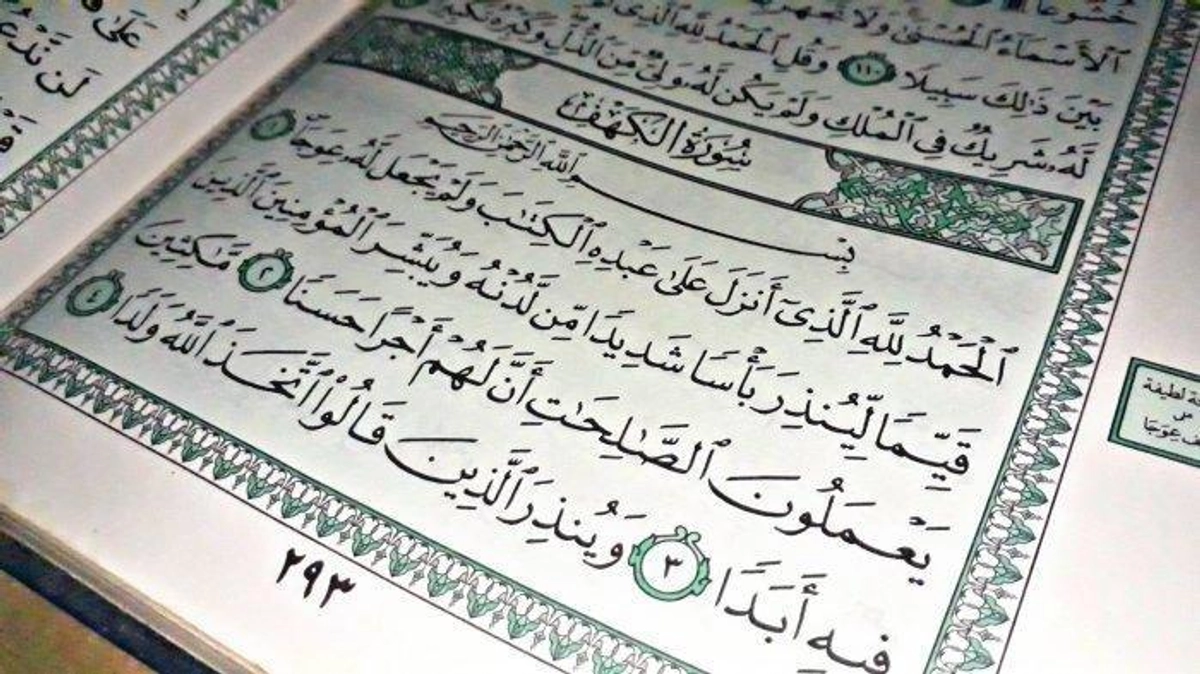 خُشُوعًا
ٱلْأَسْمَآءُ ٱلْحُسْنَىٰ وَلَا تَجْهَرْ
بَيْنَ ذَٰلِكَ سَبِيلًا ١١٠ وَقُلِ ٱلْحَمْدُ لِلَّهِ ٱلَّذِى
لَّهُۥ شَرِيكٌ فِى ٱلْمُلْكِ وَلَمْ يَكُن لَّهُۥ وَلِىٌّ مِّنَ ٱلذُّلِّ وَكَبِّرْهُ تَكْبِيرًا
سُورَةُ الكَهْفِ
بِسْمِ ٱللَّهِ ٱلرَّحْمَٰنِ ٱلرَّحِيمِ
ٱلْحَمْدُ لِلَّهِ ٱلَّذِىٓ أَنزَلَ عَلَىٰ عَبْدِهِ ٱلْكِتَٰبَ وَلَمْ يَجْعَل لَّهُۥ عِوَجَاۜ ١
قَيِّمًا لِّيُنذِرَ بَأْسًا شَدِيدًا مِّن لَّدُنْهُ وَيُبَشِّرَ ٱلْمُؤْمِنِينَ ٱلَّذِينَ
يَعْمَلُونَ ٱلصَّٰلِحَٰتِ أَنَّ لَهُمْ أَجْرًا حَسَنًا ٢ مَّٰكِثِينَ
فِيهِ أَبَدًا ٣ وَيُنذِرَ ٱلَّذِينَ قَالُوا۟ ٱتَّخَذَ ٱللَّهُ وَلَدًا ٤
٢٩٣
لطيفة
عِوَجَا
عَلَىٰ
لَن نَّدْعُ